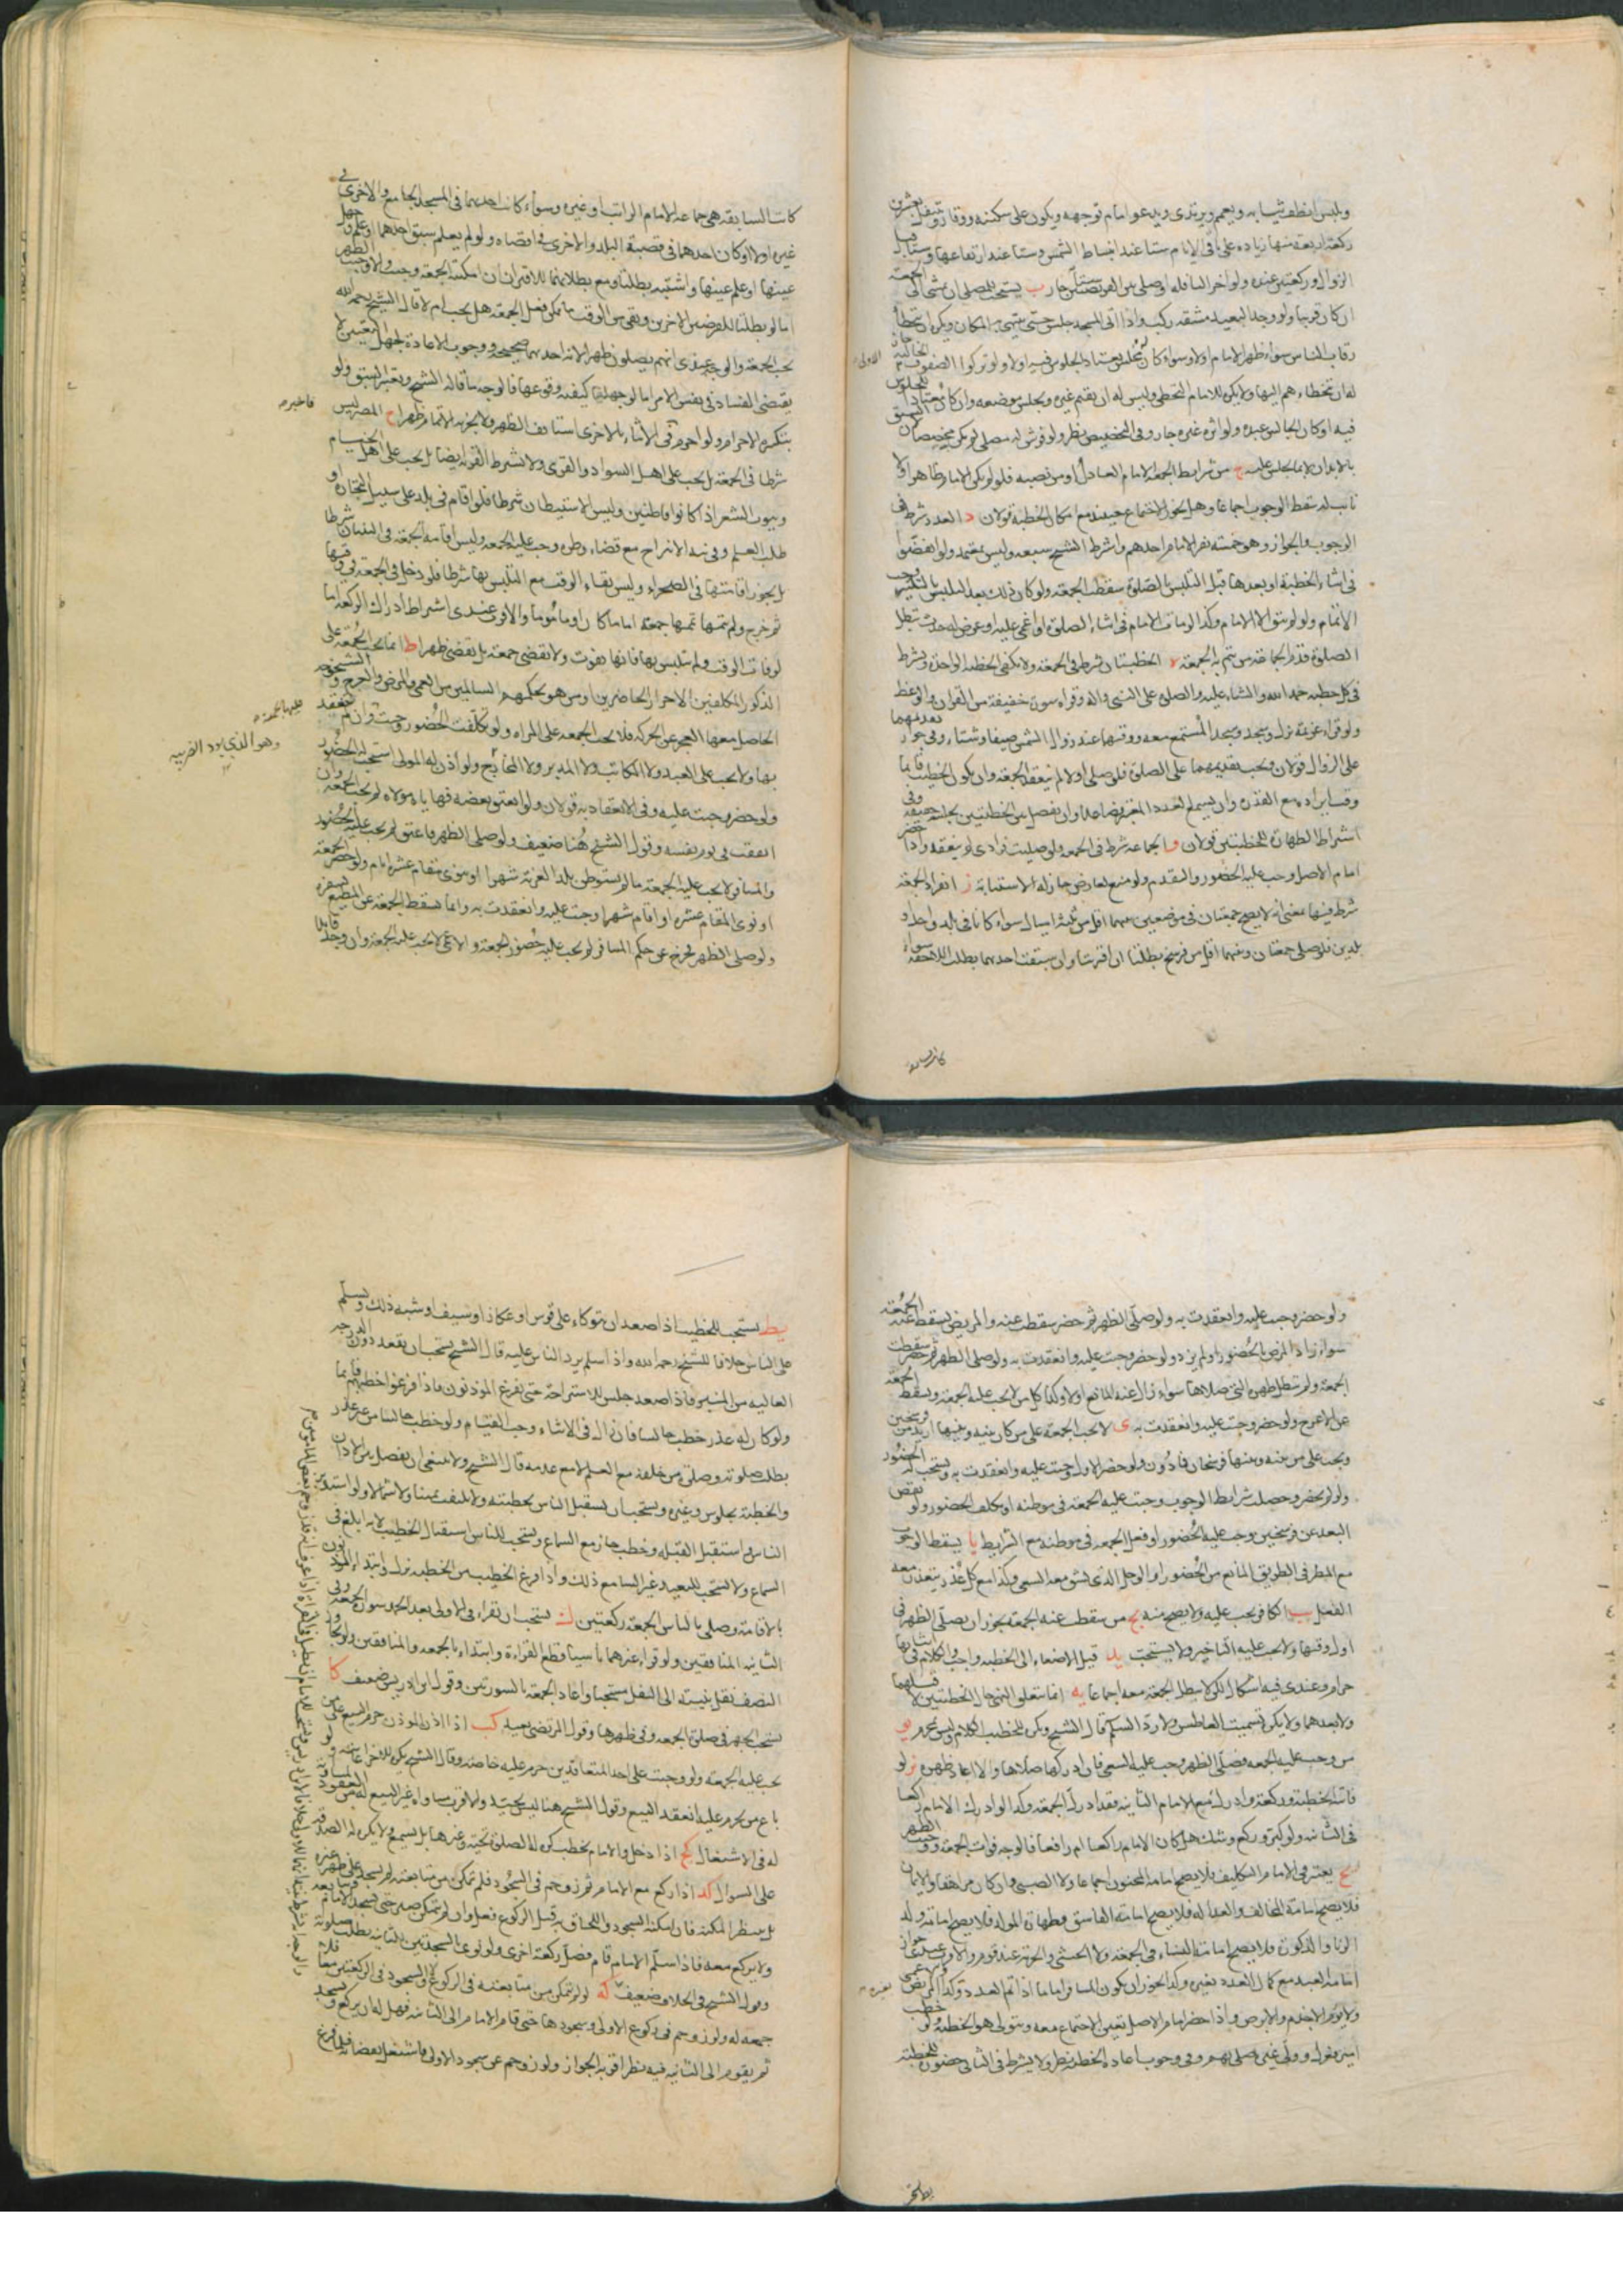 ولبس انظف ثيابه ويعمم ويرتدي ويدعو امام توجهه ويكون على سكينة ووقار وتنفل بعشرين
ركعة اربعة منها زيادة على باقي الايام ستا عند انبساط الشمس وستا عند ارتفاعها وستا قبل
الزوال وركعتين عنده ولو اخر النافلة او صلى بين الفريضتين ستا جاز ب يستحب للمصلي ان يمشي الى الجمعة
ان كان قريبا ولو وجد البعيد مشقة ركب واذا اتى المسجد جلس حيث ينتهي به المكان ويكره ان يتخطأ
رقاب الناس سواء ظهر الامام اولا وسواء كان له مجلس يعتاد الجلوس فيه اولا ولو تركوا الصفوف الخالية جاز
له ان يتخطاهم اليها ولا يكره للامام التخطي وليس له ان يقيم غيره ويجلس موضعه وان كان معتادا للجلوس
فيه او كان الجالس عبده ولو اثره غيره جاز وفي التخصيص نظر ولو فرش له مصلى لم يكن مخصصا لان السبق
بالابدان لا بما يجلس عليه ج من شرايط الجمعة الامام العادل او من نصبه فلو لم يكن الامام ظاهرا ولا
نايب له سقط الوجوب اجماعا وهل يجوز الاجتماع حينئذ مع امكان الخطبة قولان د العدد شرط في
الوجوب والجواز وهو خمسة نفر الامام احدهم واشرط الشيخ سبعة وليس بمعتمد ولو انفضوا
في اثناء الخطبة او بعدها قبل التلبس بالصلوة سقطت الجمعة ولو كان ذلك بعد التلبس بالتكبير وجب
الاتمام ولو لم يبق الا الامام وكذا لو مات الامام في اثناء الصلوة او اغمي عليه او عرض له حدث تبطل
الصلوة قدم الجماعة من يتم به الجمعة ه الخطبتان شرط في الجمعة ولا يكفي الخطبة الواحدة ويشرط
في كل خطبة حمد الله والثناء عليه والصلوة على النبي واله وقراءة سورة خفيفة من القران والوعظ
ولو قراء عزيمة نزل وسجد وسجد المستمع معه ووقتها عند زوال الشمس صيفا وشتاء وفي جواز تقديمهما
على الزوال قولان ويجب تقديمهما على الصلوة فلو صلى اولا لم ينعقد الجمعة وان يكون الخطيب قايما
وقت ايراده مع القدرة وان يسمع العدد المعتبر فصاعدا وان يفصل بين الخطبتين بجلسة خفيفة وفي
اشتراط الطهارة للخطبتين قولان و الجماعة شرط في الجمعة ولو صليت فرادى لم ينعقد واذا حضر
امام الاصل وجب عليه الحضور والتقدم ولو منع لعارض جاز له الاستنابة ز انفراد الجمعة
شرط فيها بمعنى انه لا يصح جمعتان في موضعين بينهما اقل من ثلثة اميال سواء كانا في بلد واحد او
بلدين فلو صلى جمعتان وبينهما اقل من فرسخ بطلتا ان اقترنتا وان سبقت احديهما بطلت اللاحقة سواء
كانت السابقة هي جماعة الامام الراتب او غيره وسواء كانت احديهما في المسجد الجامع والاخرى في
غيره اولا او كان احدهما في قصبة البلد والاخرى في اقصاه ولو لم يعلم سبق احدهما او علم وجهل
عينها او علم عينها واشتبه بطلتا ومع بطلانهما للاقتران ان امكنت الجمعة وجبت والا وجبت الظهر
اما لو بطلتا للفرضين الاخرين وبقي من الوقت ما يمكن فعل الجمعة هل يجب ام لا قال الشيخ رحمه الله
يجب الجمعة والوجه عندي انهم يصلون ظهرا لان احديهما صحيحة ووجوب الاعادة لجهل التعيين لا
يقتضي الفساد في نفس الامر اما لو جهلنا كيفية وقوعها فالوجه ما قاله الشيخ ويعتبر السبق ولو
بتكبيرة الاحرام ولو احرم فاخبره في الاثناء بالاخرى استانف الظهر ولا يجوز الاتمام ظهرا ح المصر ليس
شرطا في الجمعة بل يجب على اهل السواد والقرى ولا يشرط القرية ايضا بل يجب على اهل الخيام
وبيوت الشعر اذا كانوا قاطنين وليس الاستيطان شرطا فلو اقام في بلد على سبيل التجارة او
طلب العلم وفي نية الانزاح مع قضاء وطره وجب عليه الجمعة وليس اقامة الجمعة في البنيان شرطا
بل يجوز اقامتها في الصحراء وليس بقاء الوقت مع التلبس بها شرطا فلو دخل في الجمعة في وقتها
ثم خرج ولم يتمها تمها جمعة اماما كان او ماموما والاقوى عندي اشتراط ادراك الركعة اما
لو فات الوقت ولم يتلبس بها فانها تفوت ولا تقضى جمعة بل تقضى ظهرا ط انما يجب الجمعة على
الذكور المكلفين الاحرار الحاضرين او من هو بحكمهم السالمين من العمى والمرض والعرج والشيخوخة
الحاصل معها العجز عن الحركة فلا يجب الجمعة على المراة ولو تكلفت الحضور وجبت وان لم ينعقد
بها ولا يجب على العبد ولا المكاتب ولا المدبر ولا الهاي ولو اذن له المولى استحب له الحضور
ولو حضر وجبت عليه وفي الانعقاد به قولان ولو انعتق بعضه فهاياه مولاه لم يجب الجمعة وان
اتفقت في يوم نفسه وقول الشيخ هنا ضعيف ولو صلى الظهر فاعتق لم يجب عليه الحضور
والمسافر لا يجب عليه الجمعة ما لم يستوطن بلد الغربة شهرا او ينوي مقام عشرة ايام ولو حضر الجمعة
او نوى المقام عشرة او اقام شهرا وجبت عليه وانعقدت به وانما يسقط الجمعة عن المطيع بسفره
ولو صلى الظهر ثم خرج عن حكم المسافر لم يجب عليه حضور الجمعة والاعمى لا يجب عليه الجمعة وان وجد قايدا
وهو الذي يود الضريبة
ولو حضر وجب عليه وانعقدت به ولو صلى الظهر ثم حضر سقطت عنه والمريض يسقط عنه الجمعة
سواء زاد المرض بالحضور او لم يزد ولو حضر وجبت عليه وانعقدت به ولو صلى الظهر ثم حضر سقطت
الجمعة ولم تبطل ظهره التي صلاها سواء زال عنه المانع اولا وكذا كل من لا يجب عليه الجمعة ويسقط الجمعة
عن الاعرج ولو حضر وجبت عليه وانعقدت به ي لا يجب الجمعة على من كان بينه وبينها ازيد من فرسخين
ويجب على من بينه وبينها فرسخان فما دون ولو حضر الاول وجبت عليه وانعقدت به ويستحب له الحضور
ولو لم يحضر وحصلت شرايط الوجوب وجبت عليه الجمعة في موطنه او تكلف الحضور ولو نقص
البعد عن فرسخين وجب عليه الحضور او فعل الجمعة في موطنه مع الشرايط يا يسقط الوجوب
مع المطر في الطريق المانع من الحضور او الوحل الذي يشق معه السعي وكذا مع كل عذر يتعذر معه
الفعل يب الكافر يجب عليه ولا يصح منه يج من سقطت عنه الجمعة يجوز ان يصلي الظهر في
اول وقتها ولا يجب عليه التاخير ولا يستحب يد قيل الاصغاء الى الخطبة واجب والكلام في اثنائها
حرام وعندي فيه اشكال لكن لا يبطل الجمعة معه اجماعا يه انما يتعلق النهي حال الخطبتين لا قبلهما
ولا بعدهما ولا يكره تسميت العاطس ولا رد السلام قال الشيخ ويكره للخطيب الكلام وليس بمحرم يو
من وجب عليه الجمعة فصلى الظهر وجب عليه السعي فان ادركها صلاها والا اعاد ظهره يز لو
فاتته الخطبة وركعة وادرك مع الامام الثانية فقد ادرك الجمعة وكذا لو ادرك الامام راكعا
في الثانية ولو كبر وركع وشك هل كان الامام راكعا ام رافعا فالوجه فوات الجمعة ووجب الظهر
يح يعتبر في الامام التكليف فلا يصح امامة المجنون اجماعا ولا الصبي وان كان مراهقا والايمان
فلا يصح امامة المخالف والعدالة فلا يصح امامة الفاسق وطهارة المولد فلا يصح امامة ولد
الزنا والذكورة فلا يصح امامة النساء في الجمعة ولا الخنثى والحرية عند قوم والاقرب عندي جواز
امامة العبد مع كمال العدد بغيره وكذا يجوز ان يكون المسافر اماما اذا تم العدد بغيره وكذا المريض
ولا يؤم الاجذم والابرص واذا حضر امام الاصل تعين الاجتماع معه ويتولى هو الخطبة ولو خطب
امير فعزل وولي غيره صلى بهم وفي وجوب اعادة الخطبة نظر ولا يشرط في الثاني حضور الخطبة
يط يستحب للخطيب اذا صعد ان يتوكاء على قوس او عكاز او سيف او شبه ذلك ويسلم
على الناس خلافا للشيخ رحمه الله واذا سلم يرد الناس عليه قال الشيخ يستحب ان يقعد دون الدرجة
العالية من المنبر فاذا صعد جلس للاستراحة حتى يفرغ الموذنون فاذا فرغوا خطبهم قايما
ولو كان له عذر خطب جالسا فان زال في الاثناء وجب القيام ولو خطب جالسا من غير عذر
بطلت صلوته وصلوة من خلفه مع العلم لا مع عدمه قال الشيخ ولا ينبغي ان يفصل بين الاذان
والخطبة بجلوس وغيره ويستحب ان يستقبل الناس بخطبته ولا يلتفت يمينا ولا شمالا ولو استدبر
الناس واستقبل القبلة وخطب جاز مع السماع ويستحب للناس استقبال الخطيب لانه ابلغ في
السماع ولا يستحب للبعيد وغير السامع ذلك واذا فرغ الخطيب من الخطبة نزل وابتداء الموذن
بالاقامة وصلى بالناس الجمعة ركعتين ك يستحب ان يقراء في الاولى بعد الحمد سورة الجمعة وفي
الثانية المنافقين ولو قراء غيرهما ناسيا قطع القراءة وابتداء بالجمعة والمنافقين ولو تجاوز
النصف نقل بنيته الى النفل مستحبا واعاد الجمعة بالسورتين وقول ابن ادريس ضعيف كا
يستحب الجهر في صلوة الجمعة وفي ظهرها وقول المرتضى بعيد كب اذا اذن الموذن حرم البيع على من
يجب عليه الجمعة ولو وجبت على احد المتعاقدين حرم عليه خاصة وقال الشيخ يكره للاخر
باع من يحرم عليه انعقد البيع وقول الشيخ هنا ليس بجيد والاقرب مساواة غير البيع له من العقود
له في الاشتغال كج اذا دخل والامام يخطب كره له الصلوة تحية وغيرها بل يسمع ولا يكره له الصدقة
على السؤال كد اذا ركع مع الامام ثم زوحم في السجود فلم يتمكن من متابعته لم يسجد على ظهر غيره
بل ينتظر المكنة فان امكنه السجود واللحاق به قبل الركوع فعل وان لم يتمكن صبر حتى يسجد الامام
ولا يركع معه فاذا سلم الامام قام فصلى ركعة اخرى ولو نوى بالسجدتين الثانية بطلت صلوته
وقول الشيخ في الخلاف ضعيف كه لو لم يتمكن من متابعته في الركوع والسجود في الركعتين معا فلا
جمعة له ولو زوحم في ركوع الاولى وسجودها حتى قام الامام الى الثانية فهل له ان يركع ويسجد
ثم يقوم الى الثانية فيه نظر اقربه الجواز ولو زوحم عن سجود الاولى فاشتغل بقضائه فلما فرغ